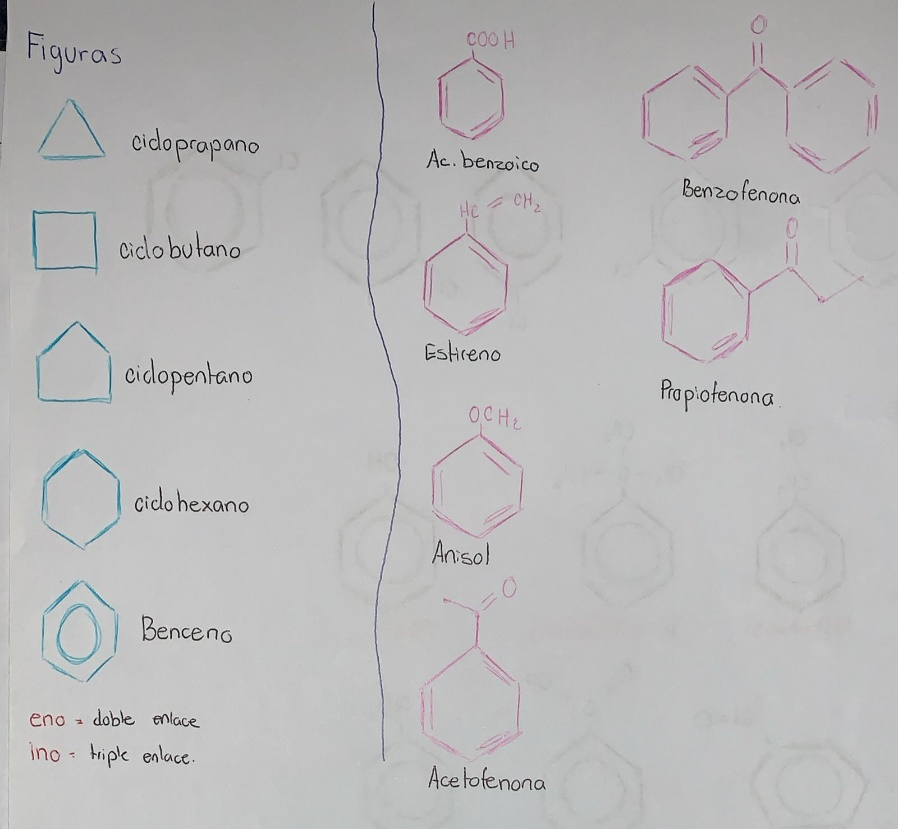 Figuras
cicloprapano
ciclobutano
ciclopentano
ciclohexano
Benceno
eno = doble enlace
ino = triple enlace.
COOH
Ac. benzoico
HC = CH2
Estireno
OCH2
Anisol
O
Acetofenona
O
Benzofenona
O
Propiofenona.